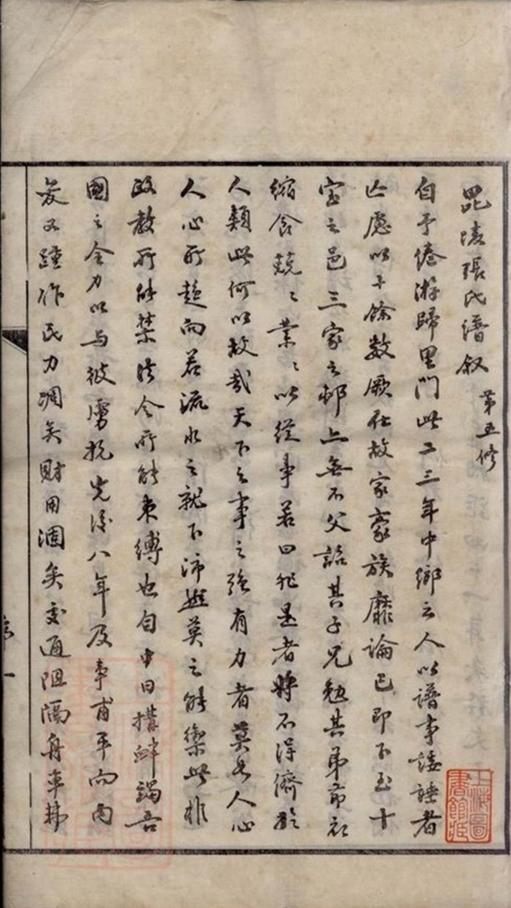 毘陵張氏譜叙 第五修
自予倦游歸里門此二三年中鄉之人以譜事諈諉者
亡慮以十餘數厥在故家豪族靡論已即下至十
室之邑三家之邨亦無不父詔其子兄勉其弟節衣
縮食競競業業以從事若曰非是者將不得儕於
人類此何以故哉天下之事之強有力者莫如人心
人心所趨向若流水之就下沛然莫之能禦此非
政教所能禁法令所能束縛也自中日搆衅竭吾
國之全力以與彼虜抗先後八年及事甫平而內
變又踵作民力凋矣財用涸矣交通阻隔舟車梗
序
一
上海圖書館藏